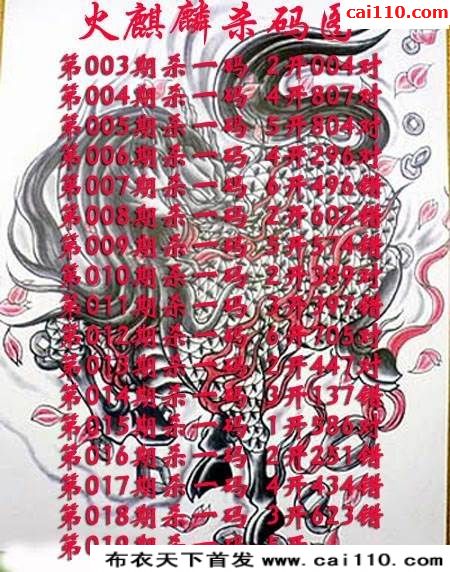 cai110.com
火麒麟杀码区
第003期杀一码 2开004对
第004期杀一码 4开807对
第005期杀一码 5开804对
第006期杀一码 4开296对
第007期杀一码 6开496错
第008期杀一码 2开602错
第009期杀一码 5开574错
第010期杀一码 2开389对
第011期杀一码 3开397错
第012期杀一码 6开705对
第013期杀一码 2开447对
第014期杀一码 3开137错
第015期杀一码 1开586对
第016期杀一码 2开251错
第017期杀一码 4开434错
第018期杀一码 3开623错
布衣天下首发 www.cai110.com